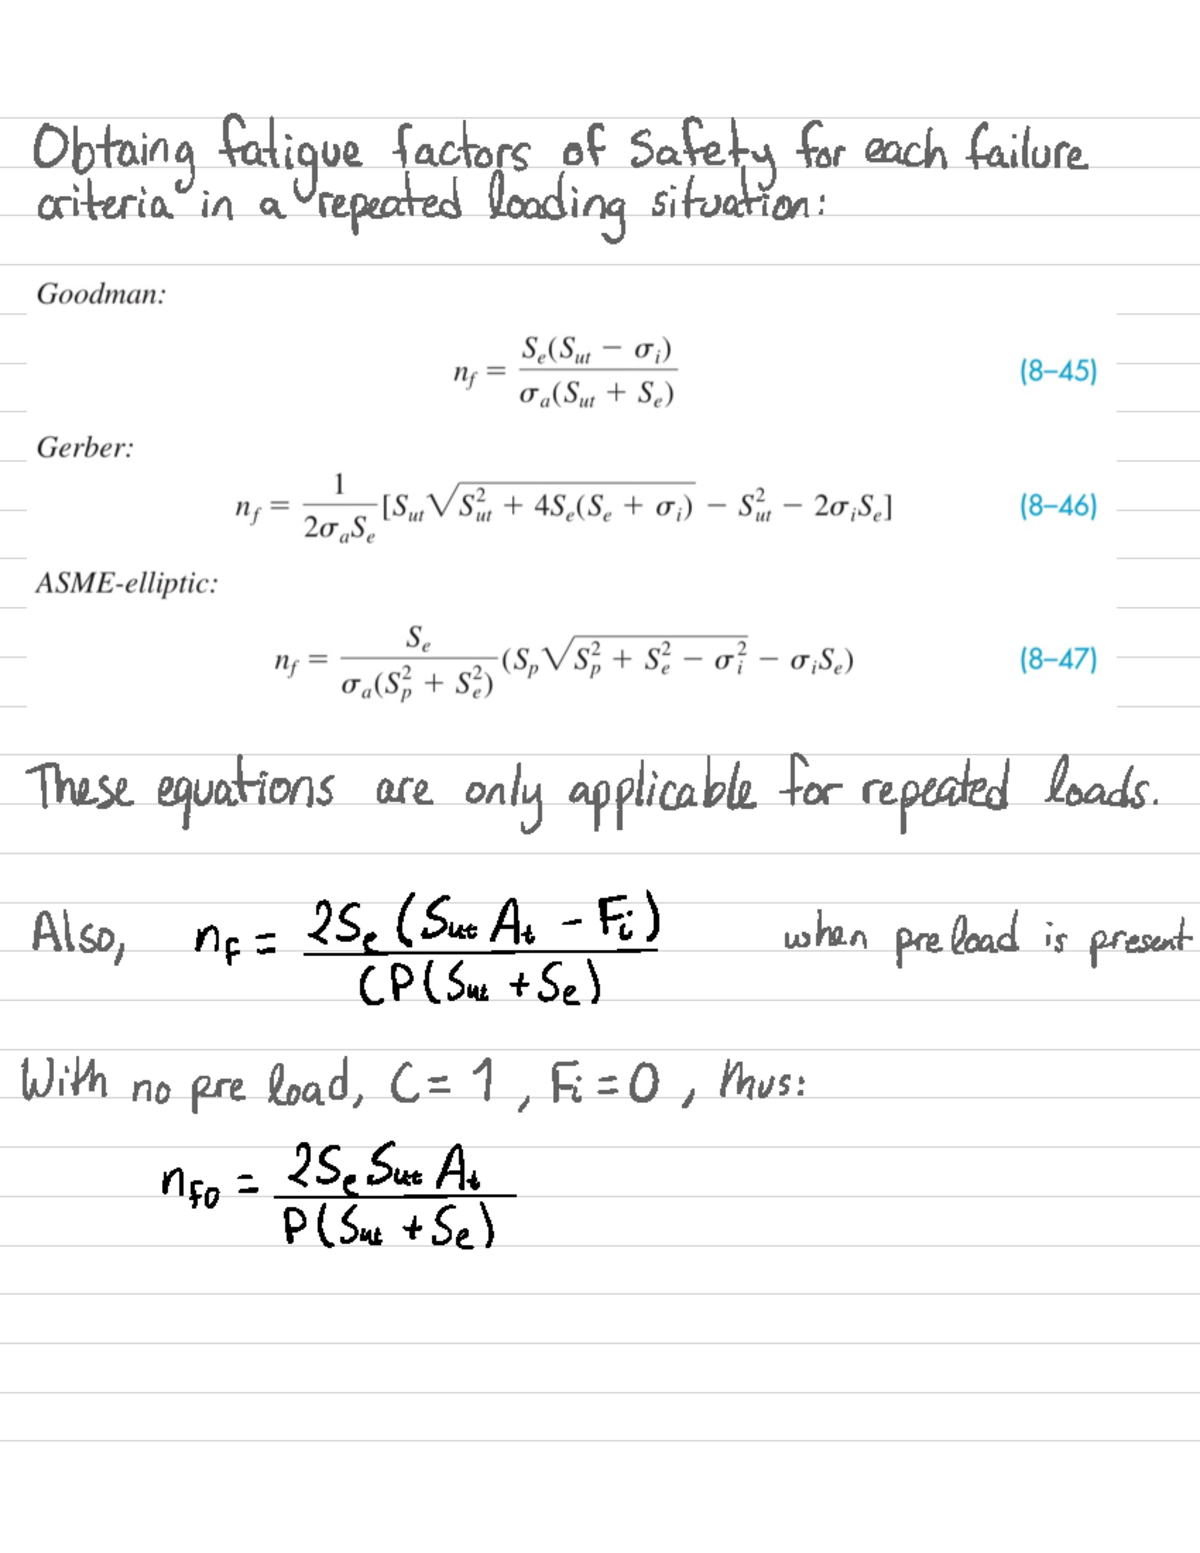 Obtaing fatigue factors of safety for each failure
criteria in a repeated loading situation:
Goodman:
n_f = S_e(S_ut − σ_i) / σ_a(S_ut + S_e) (8–45)
Gerber:
n_f = 1 / 2σ_aS_e [S_ut√(S_ut² + 4S_e(S_e + σ_i)) − S_ut² − 2σ_iS_e] (8–46)
ASME-elliptic:
n_f = S_e / σ_a(S_p² + S_e²) (S_p√(S_p² + S_e² − σ_i²) − σ_iS_e) (8–47)
These equations are only applicable for repeated loads.
Also, n_f = 2S_e(S_ut A_t - F_i) / CP(S_ut + S_e) when preload is present
With no pre load, C = 1, F_i = 0, thus:
n_f0 = 2S_e S_ut A_t / P(S_ut + S_e)